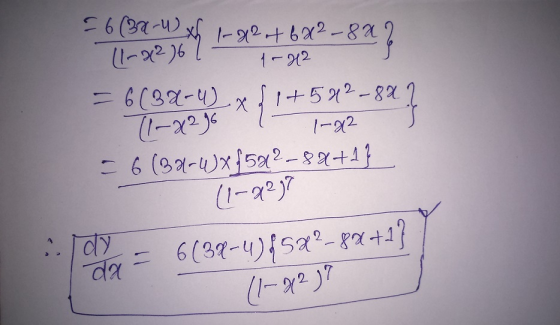 = 6(3x-4)/(1-x²)6 × { 1-x²+6x²-8x / 1-x² }
= 6(3x-4)/(1-x²)6 × { 1+5x²-8x / 1-x² }
= 6(3x-4)×{5x²-8x+1} / (1-x²)⁷
∴ dy/dx = 6(3x-4){5x²-8x+1} / (1-x²)⁷